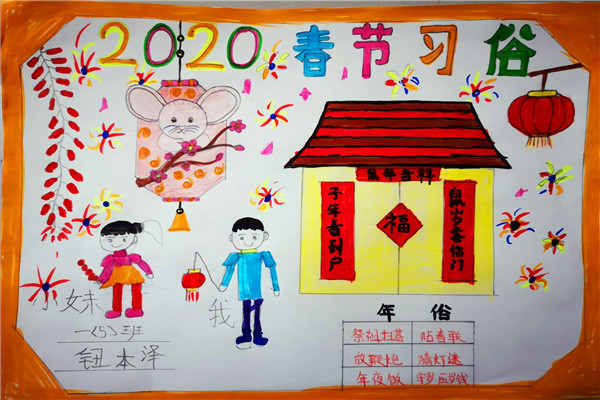 2020春节习俗
鼠年吉祥
子年春到户
福
鼠岁喜临门
小妹
我
一(5)班
钮本泽
年俗
祭祖扫墓 贴春联
放鞭炮 猜灯谜
年夜饭 守岁压岁钱